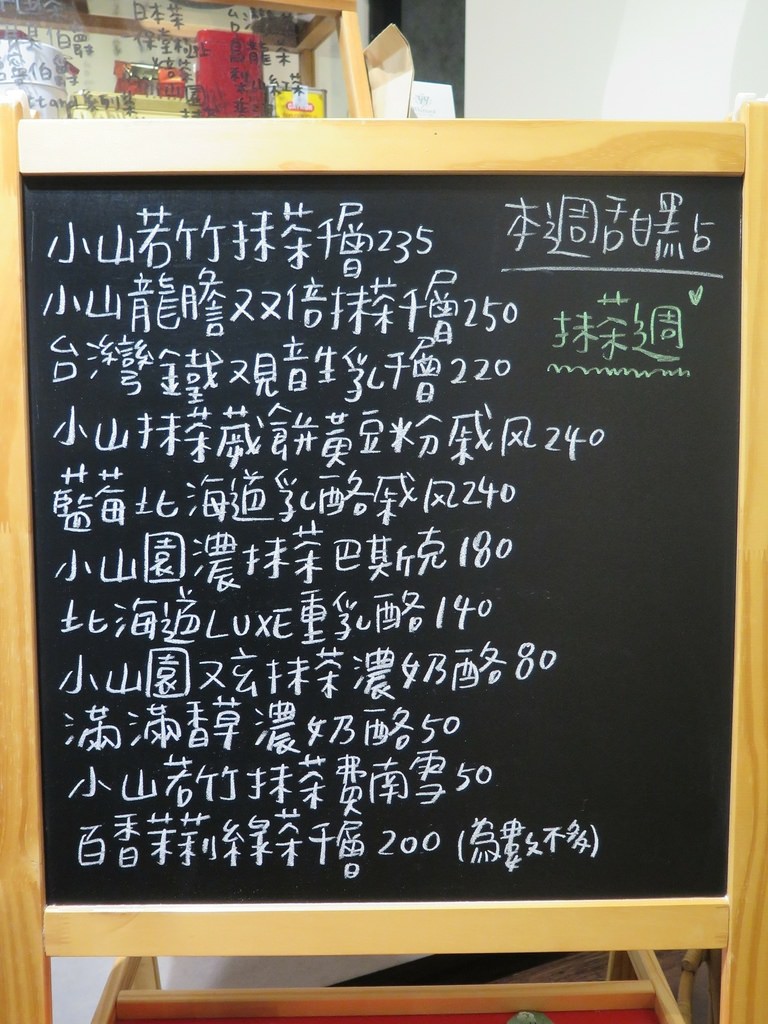 本週甜點
抹茶週
小山若竹抹茶千層235
小山龍膽双倍抹茶千層250
台灣鐵观音生乳千層220
小山抹茶蕨餅黃豆粉戚风240
藍莓北海道乳酪戚风240
小山園濃抹茶巴斯克180
北海道LUXE重乳酪140
小山園又玄抹茶濃奶酪80
滿滿香草濃奶酪50
小山若竹抹茶費南雪50
百香茉莉綠茶千層200(為數不多)
日本茶